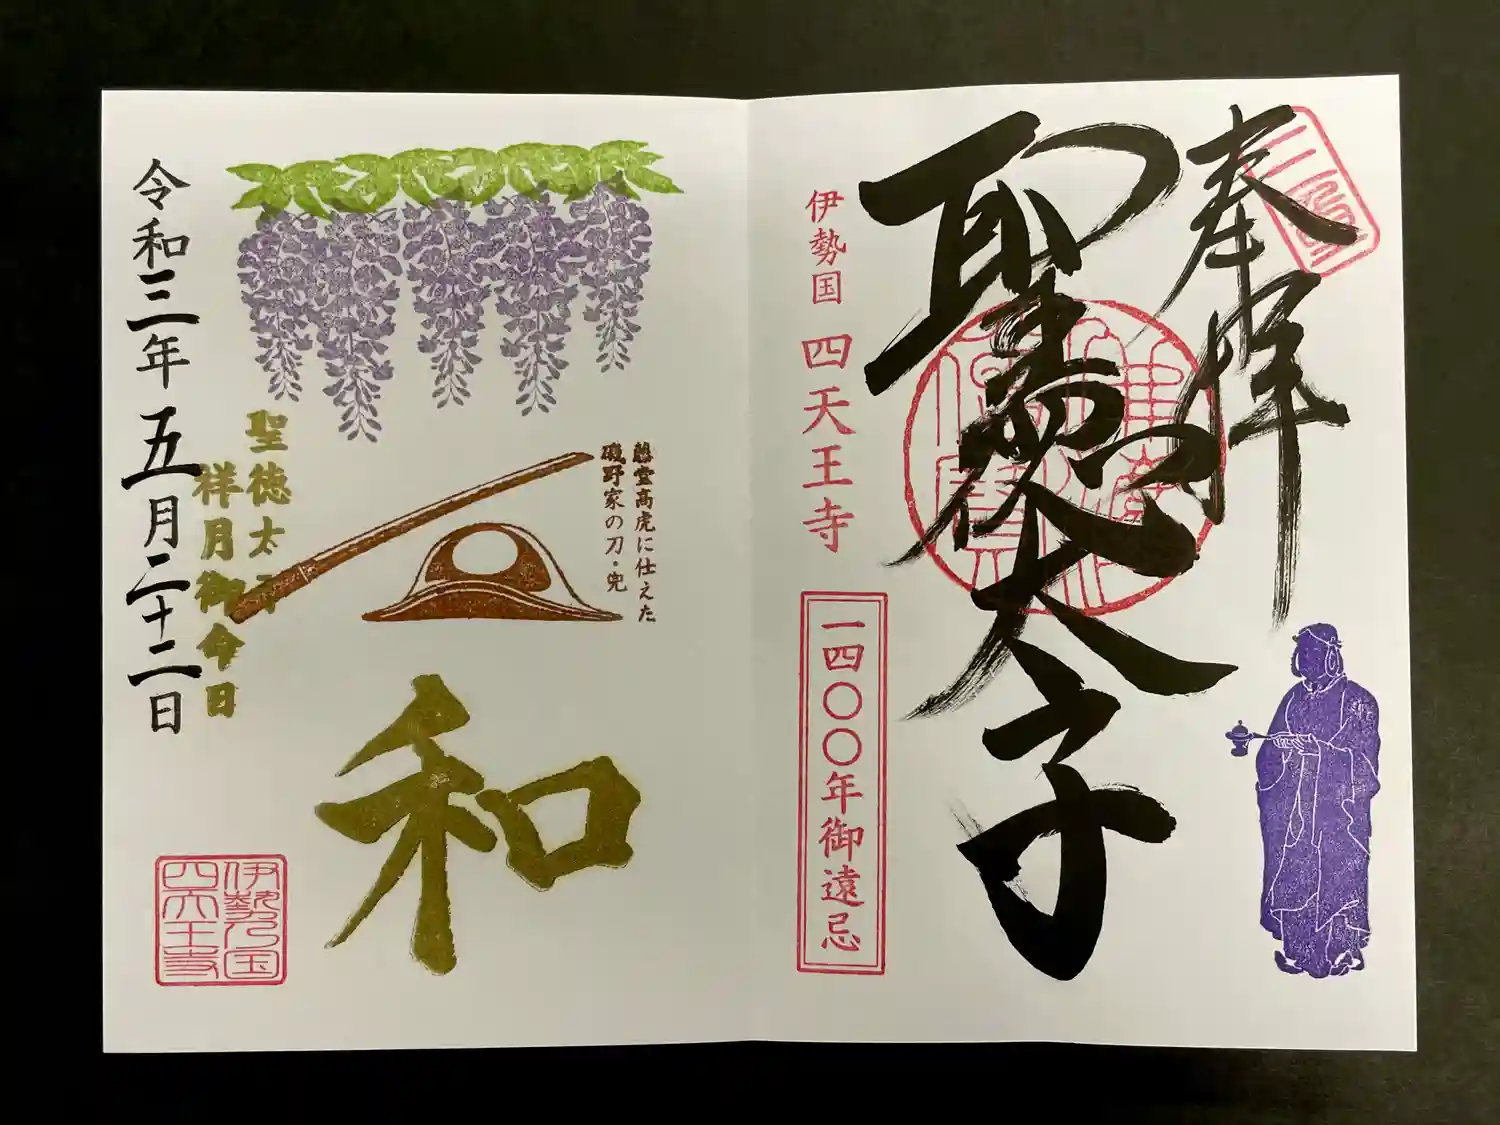 奉拝
聖徳太子
伊勢国 四天王寺
一四〇〇年御遠忌
藤堂高虎に仕えた
磯野家の刀・兜
和
聖徳太子
祥月御命日
令和三年五月二十二日
伊勢乃国
四天王寺